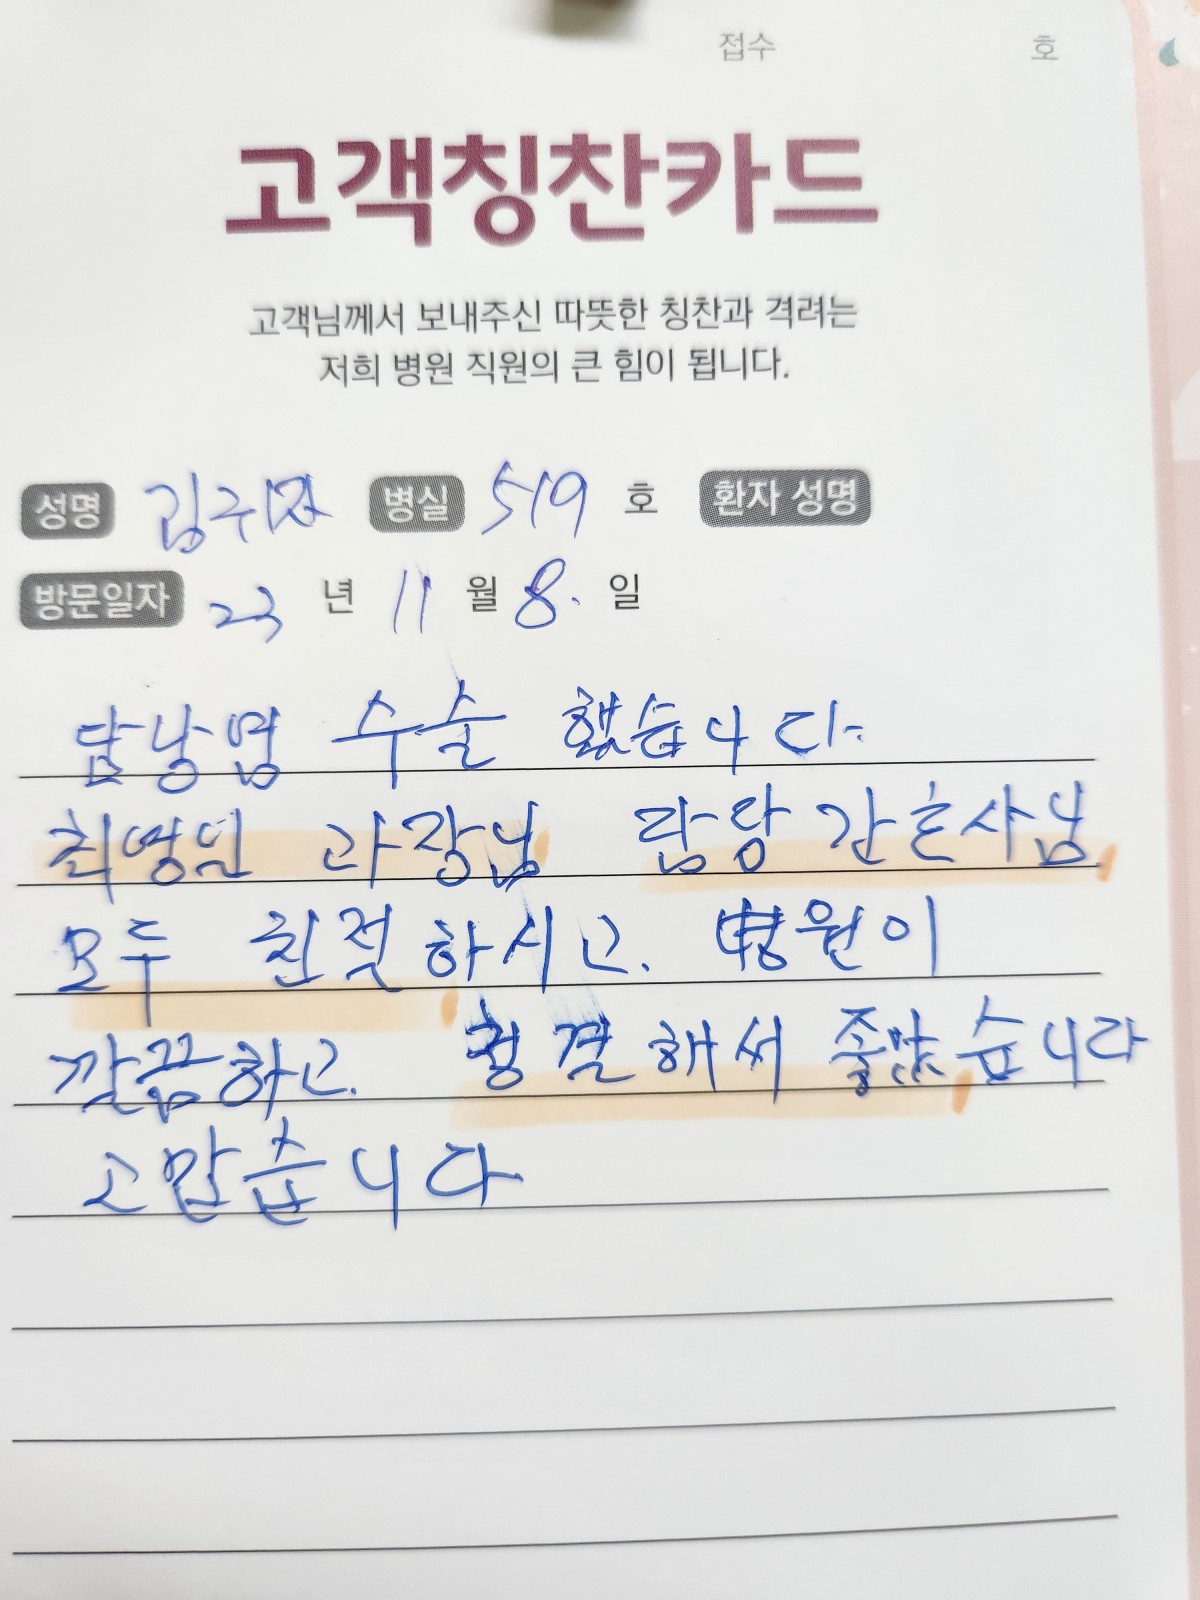 접수 호
고객칭찬카드
고객님께서 보내주신 따뜻한 칭찬과 격려는
저희 병원 직원의 큰 힘이 됩니다.
성명 병실 519 호 환자 성명
방문일자 23 년 11 월 8. 일
담낭염 수술 했습니다.
과장님 담당 간호사님
모두 친절하시고. 병원이
깔끔하고. 청결해서 좋았습니다
고맙습니다